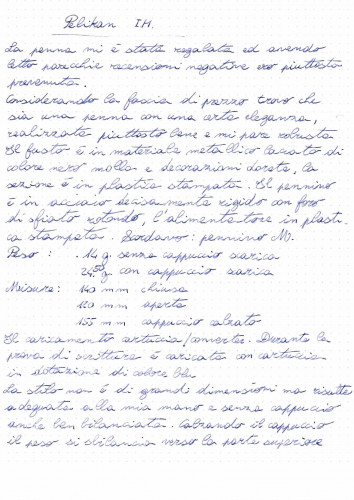 Pelikan I.M.
La penna mi è stata regalata ed avendo
letto parecchie recensioni negative ero piuttosto
prevenuta.
Considerando la fascia di prezzo trovo che
sia una penna con una certa eleganza,
realizzata piuttosto bene e mi pare robusta
Il fusto è in materiale metallico laccato di
colore nero molla e decorazioni dorate, la
sezione è in plastica stampata. Il pennino
è in acciaio decisamente rigido con foro
di sfiato rotondo, l'alimentatore in plasti-
ca stampata. pennino M).
Peso : 14 g. senza cappuccio scarica
24,50 g. con cappuccio scarica
Misure: 140 mm chiusa
120 mm aperta
155 mm cappuccio calzato
Il caricamento cartuccia/converter. Durante la
prova di scrittura è caricata con cartuccia
in dotazione di colore blu.
La stilo non è di grandi dimensioni ma risulta
adeguata alla mia mano e senza cappuccio
anche ben bilanciata. Calzando il cappuccio
il peso si sbilancia verso la parte superiore